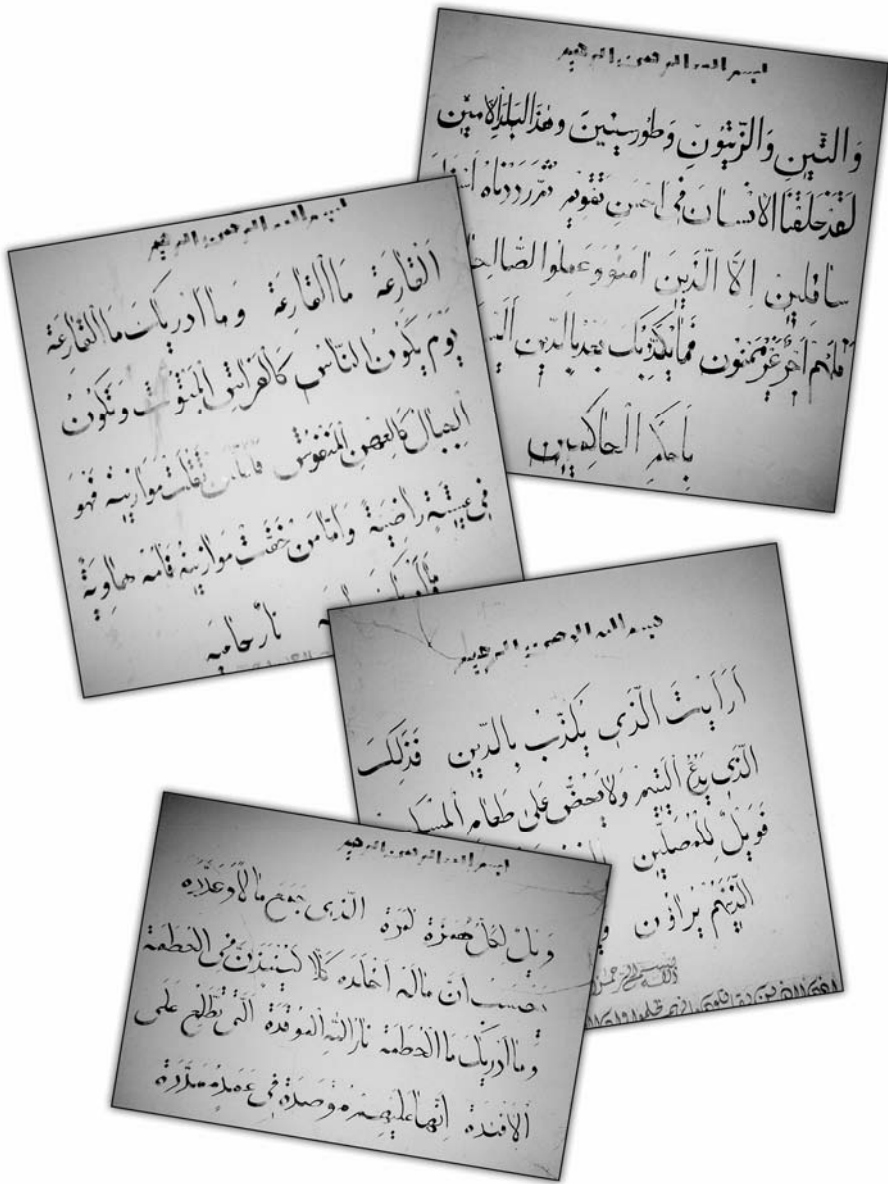 بسم الله الرحمن الرحيم
وَالتِّينِ وَالزَّيْتُونِ وَطُورِسِينِينَ وَهٰذَاالْبَلَدِالْاَمِينِ
لَقَدْخَلَقْنَاالْاِنْسَانَ فِى اَحْسَنِ تَقْوِيمٍ ثُمَّ رَدَدْنَاهُ
سَافِلِينَ اِلَّا الَّذِينَ اٰمَنُووَعَمِلُوا
فَلَهُمْ اَجْرٌغَيْرُمَمْنُونٍ فَمَايُكَذِّبُكَ بَعْدُبِالدِّينِ
بِاَحْكَمِ الْحَاكِمِينَ
بسم الله الرحمن الرحيم
اَلْقَارِعَةُ مَاالْقَارِعَةُ وَمَااَدْرٰيكَ مَاالْقَارِعَةُ
يَوْمَ يَكُونُ النَّاسُ كَالْفَرَاشِ الْمَبْثُوثِ وَتَكُونُ
الْجِبَالُ كَالْعِهْنِ الْمَنْفُوشِ فَاَمَّامَنْ ثَقُلَتْ مَوَازِينُهُ فَهُوَ
فِى عِيشَةٍ رَاضِيَةٍ وَاَمَّامَنْ خَفَّتْ مَوَازِينُهُ فَاُمُّهُ هَاوِيَةٌ
نَارٌحَامِيَه
بسم الله الرحمن الرحيم
اَرَاَيْتَ الَّذِى يُكَذِّبُ بِالدِّينِ فَذٰلِكَ
الَّذِى يَدُعُّ الْيَتِيمَ وَلَايَحُضُّ عَلٰى طَعَامِ
فَوَيْلٌ لِلْمُصَلِّينَ
الَّذِينَهُمْ يُرَاؤُنَ
بسم الله الرحمن الرحيم
وَيْلٌ لِكُلِّ هُمَزَةٍ لُمَزَةٍ الَّذِى جَمَعَ مَالًاوَعَدَّدَه
يَحْسَبُ اَنَّ مَالَهُ اَخْلَدَه كَلَّا لَيُنْبَذَنَّ فِى الْحُطَمَة
وَمَااَدْرٰيكَ مَاالْحُطَمَة نَارُاللهِ الْمُوقَدَة اَلَّتِى تَطَّلِعُ عَلَى
الْاَفْئِدَة اِنَّهَاعَلَيْهِمْ مُوصَدَة فِى عَمَدٍمُمَدَّدَة